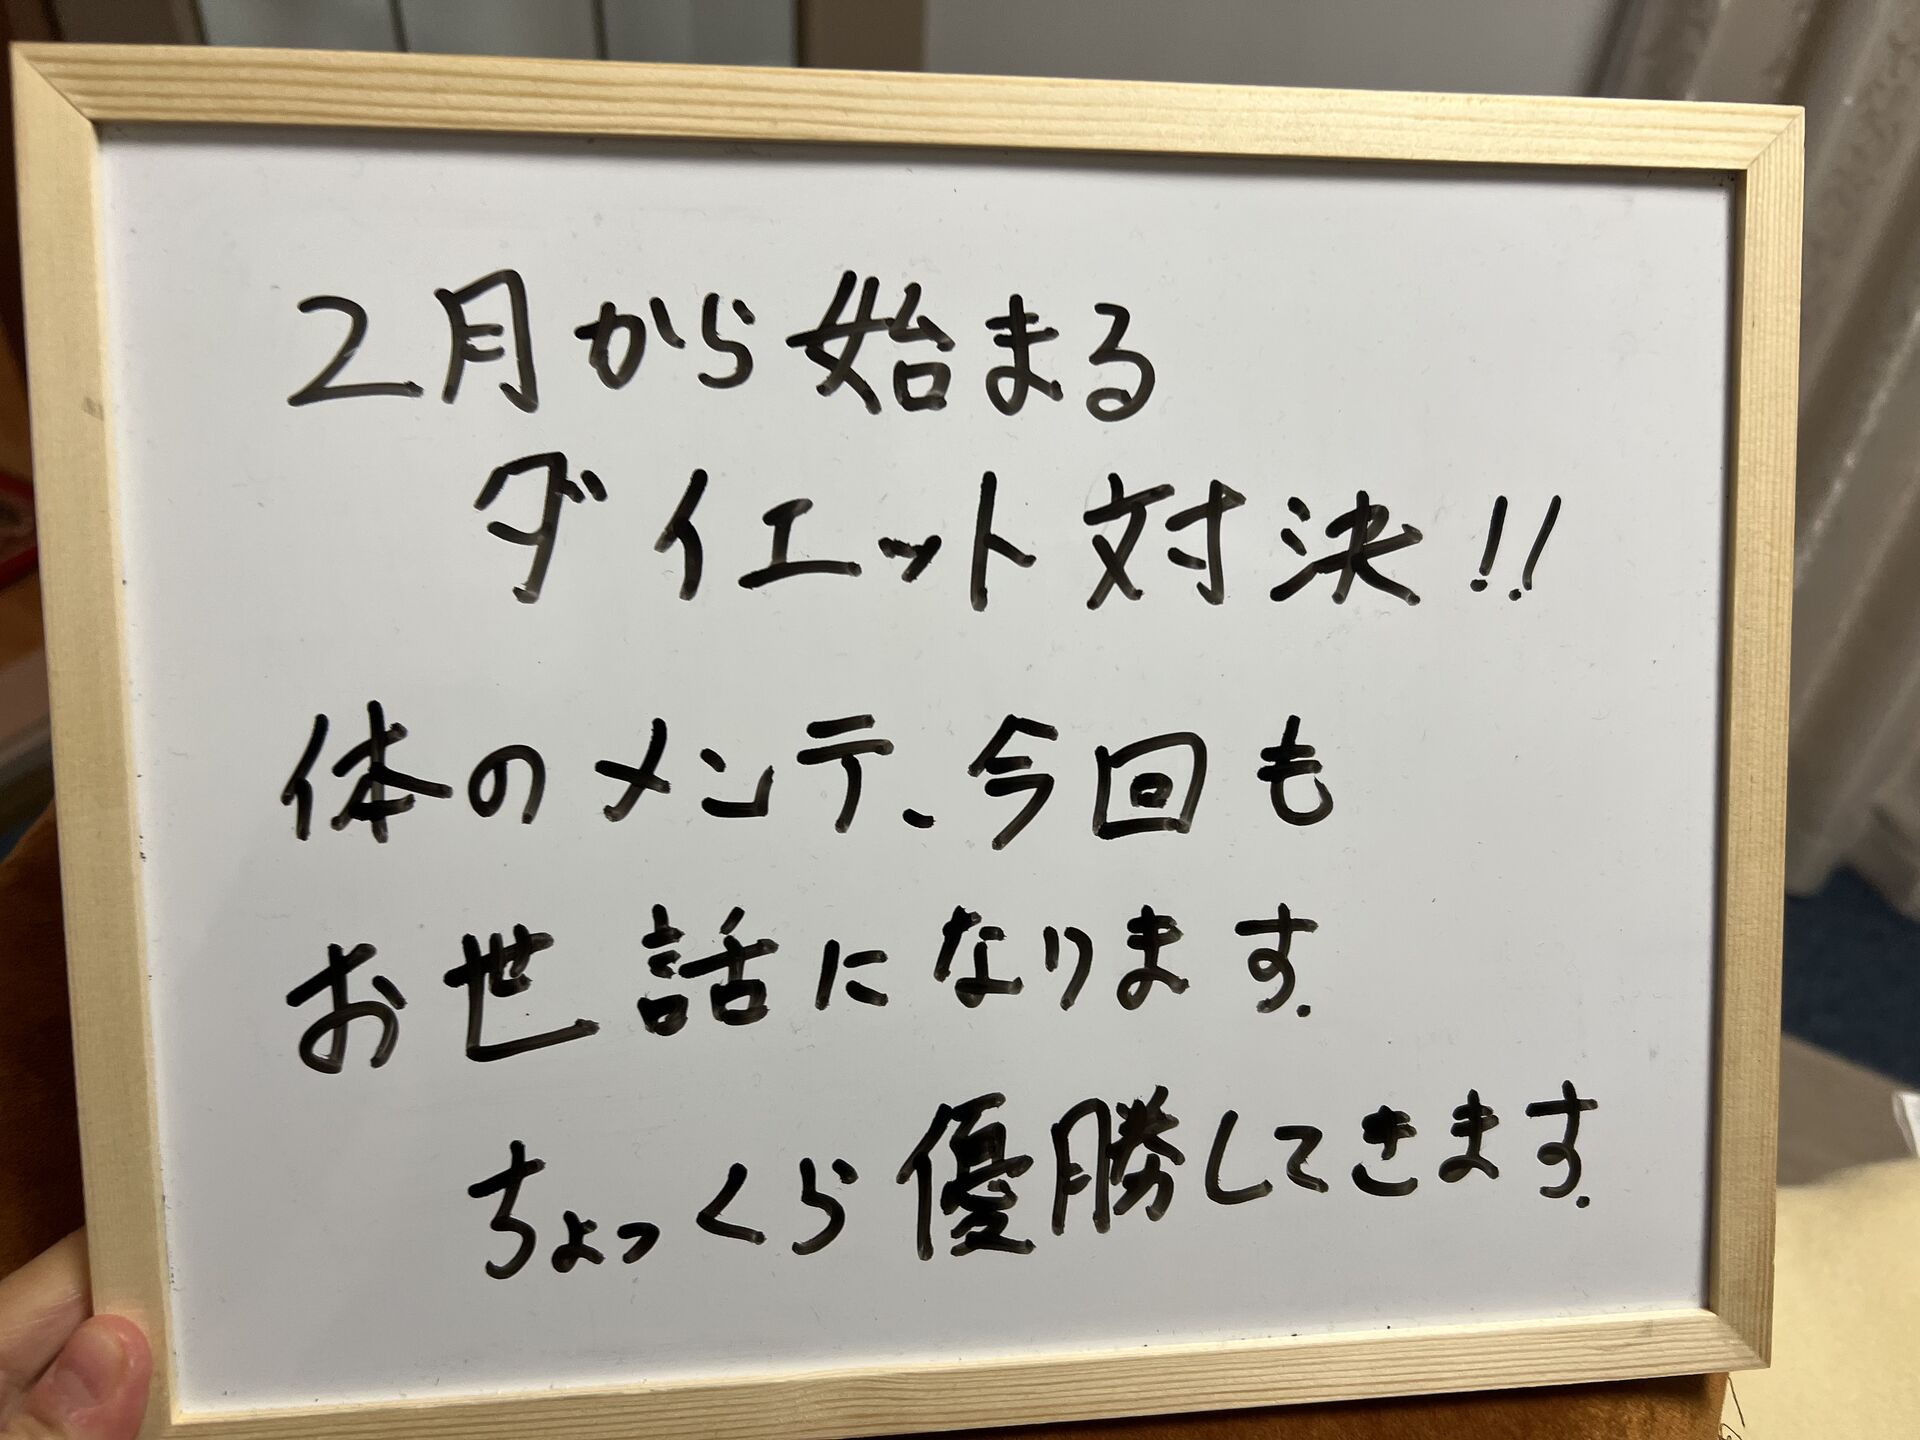 2月から始まる
ダイエット対決!!
体のメンテ、今回も
お世話になります.
ちょっくら優勝してきます.